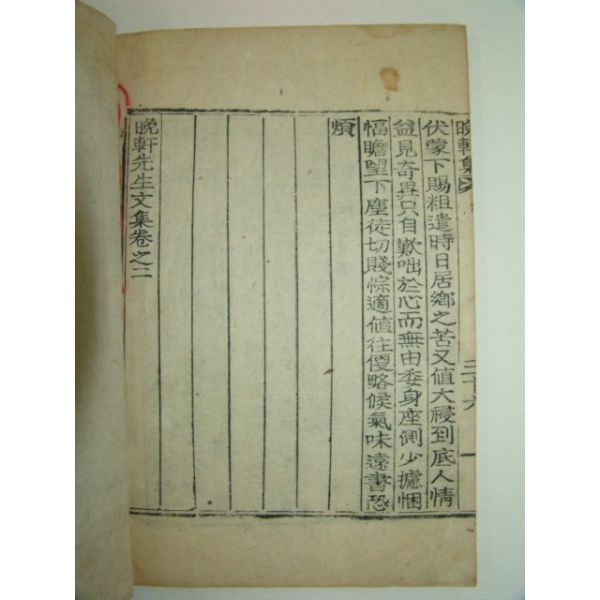 晩軒集
三十六
伏蒙下賜粗遣時日居鄉之苦又値大祲到底人情
益見奇異只自歎咄於心而無由委身座側少攄悃
愊瞻望下塵徒切賤悰適値往便略候氣味遠書恐
煩
晩軒先生文集卷之二